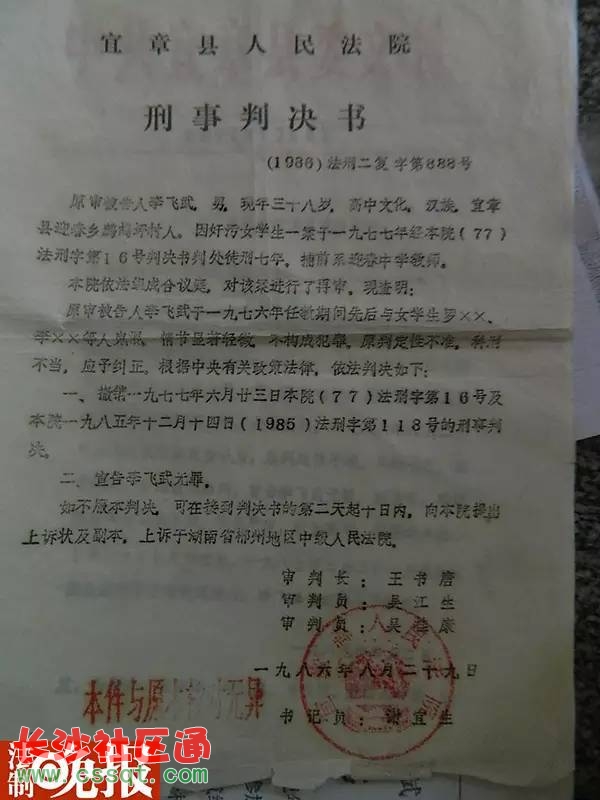 宜章县人民法院
刑事判决书
(1986)法刑二复字第888号
原审被告人李飞武，男，现年三十八岁，高中文化，汉族，宜章
县迎春乡 村人。因奸污女学生一案于一九七七年经本院(77)
法刑字第16号判决书判处徒刑七年。捕前系迎春中学教师。
本院依法组成合议庭，对该案进行了再审。现查明：
原审被告人李飞武于一九七六年任教期间先后与女学生罗××、
李××等人 情节显著轻微，不构成犯罪。原判定性不准，科刑
不当，应予纠正。根据中央有关政策法律，依法判决如下：
一、撤销一九七七年六月廿三日本院(77)法刑字第16号及
本院一九八五年十二月十四日(1985)法刑字第118号的刑事判
决。
二、宣告李飞武无罪。
如不服本判决，可在接到判决书的第二天起十日内，向本院提出
上诉状及副本，上诉于湖南省郴州地区中级人民法院。
审判长：王书唐
审判员：吴江生
审判员：吴 康
一九八六年八月二十九日
本件与原本核对无异
书记员：谢宜生
法制晚报
长沙社区通
www.cssqt.com